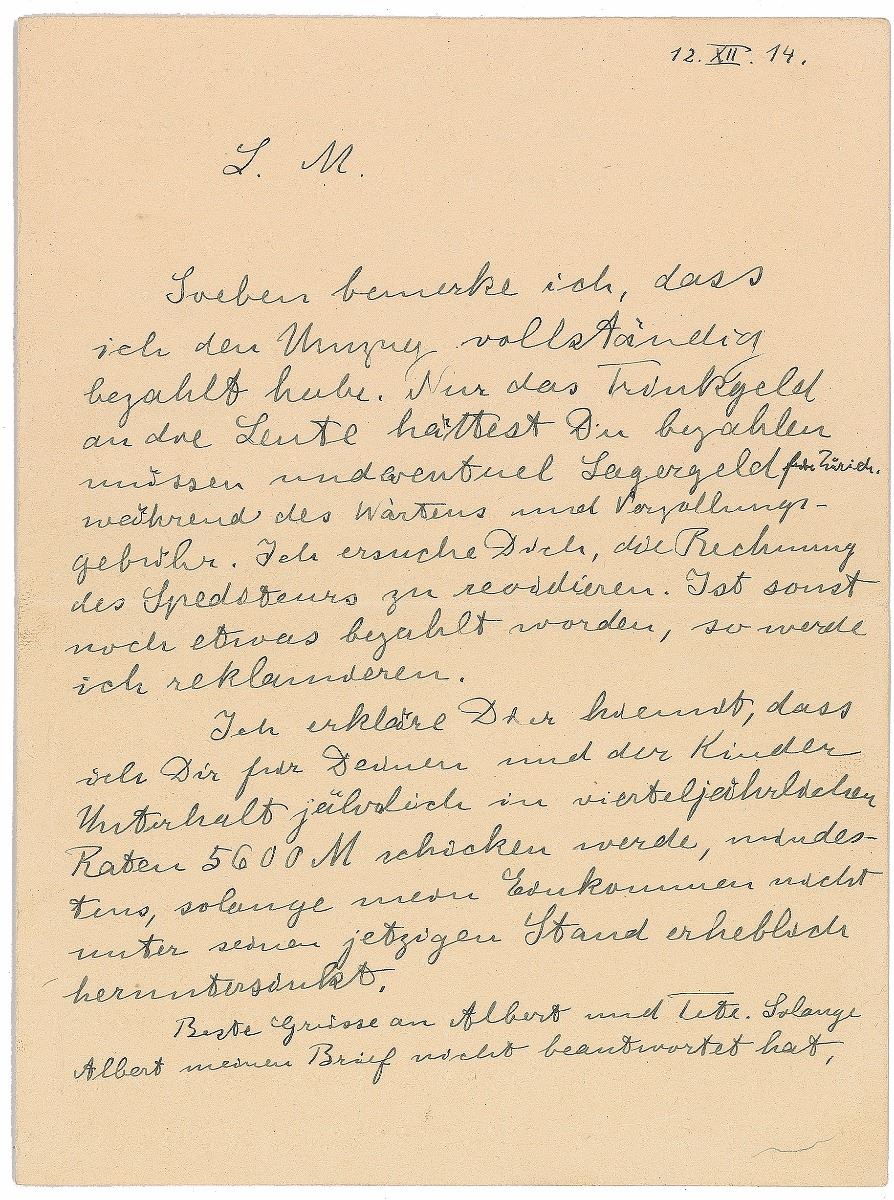 12. XII. 14.
L. M.
Soeben bemerke ich, dass
ich den Umzug vollständig
bezahlt habe. Nur das Trinkgeld
an die Leute hättest Du bezahlen
müssen und eventuel Lagergeld für Zürich.
während des Wartens und Verzollungs-
gebühr. Ich ersuche Dich, die Rechnung
des Spediteurs zu revidieren. Ist sonst
noch etwas bezahlt worden, so werde
ich reklamieren.
Ich erkläre Dir hiemit, dass
ich Dir für Deinen und der Kinder
Unterhalt jährlich in vierteljährlichen
Raten 5600 M schicken werde, mindes-
tens, solange mein Einkommen nicht
unter seinen jetzigen Stand erheblich
heruntersinkt.
Beste Grüsse an Albert und Tete. Solange
Albert meinen Brief nicht beantwortet hat,